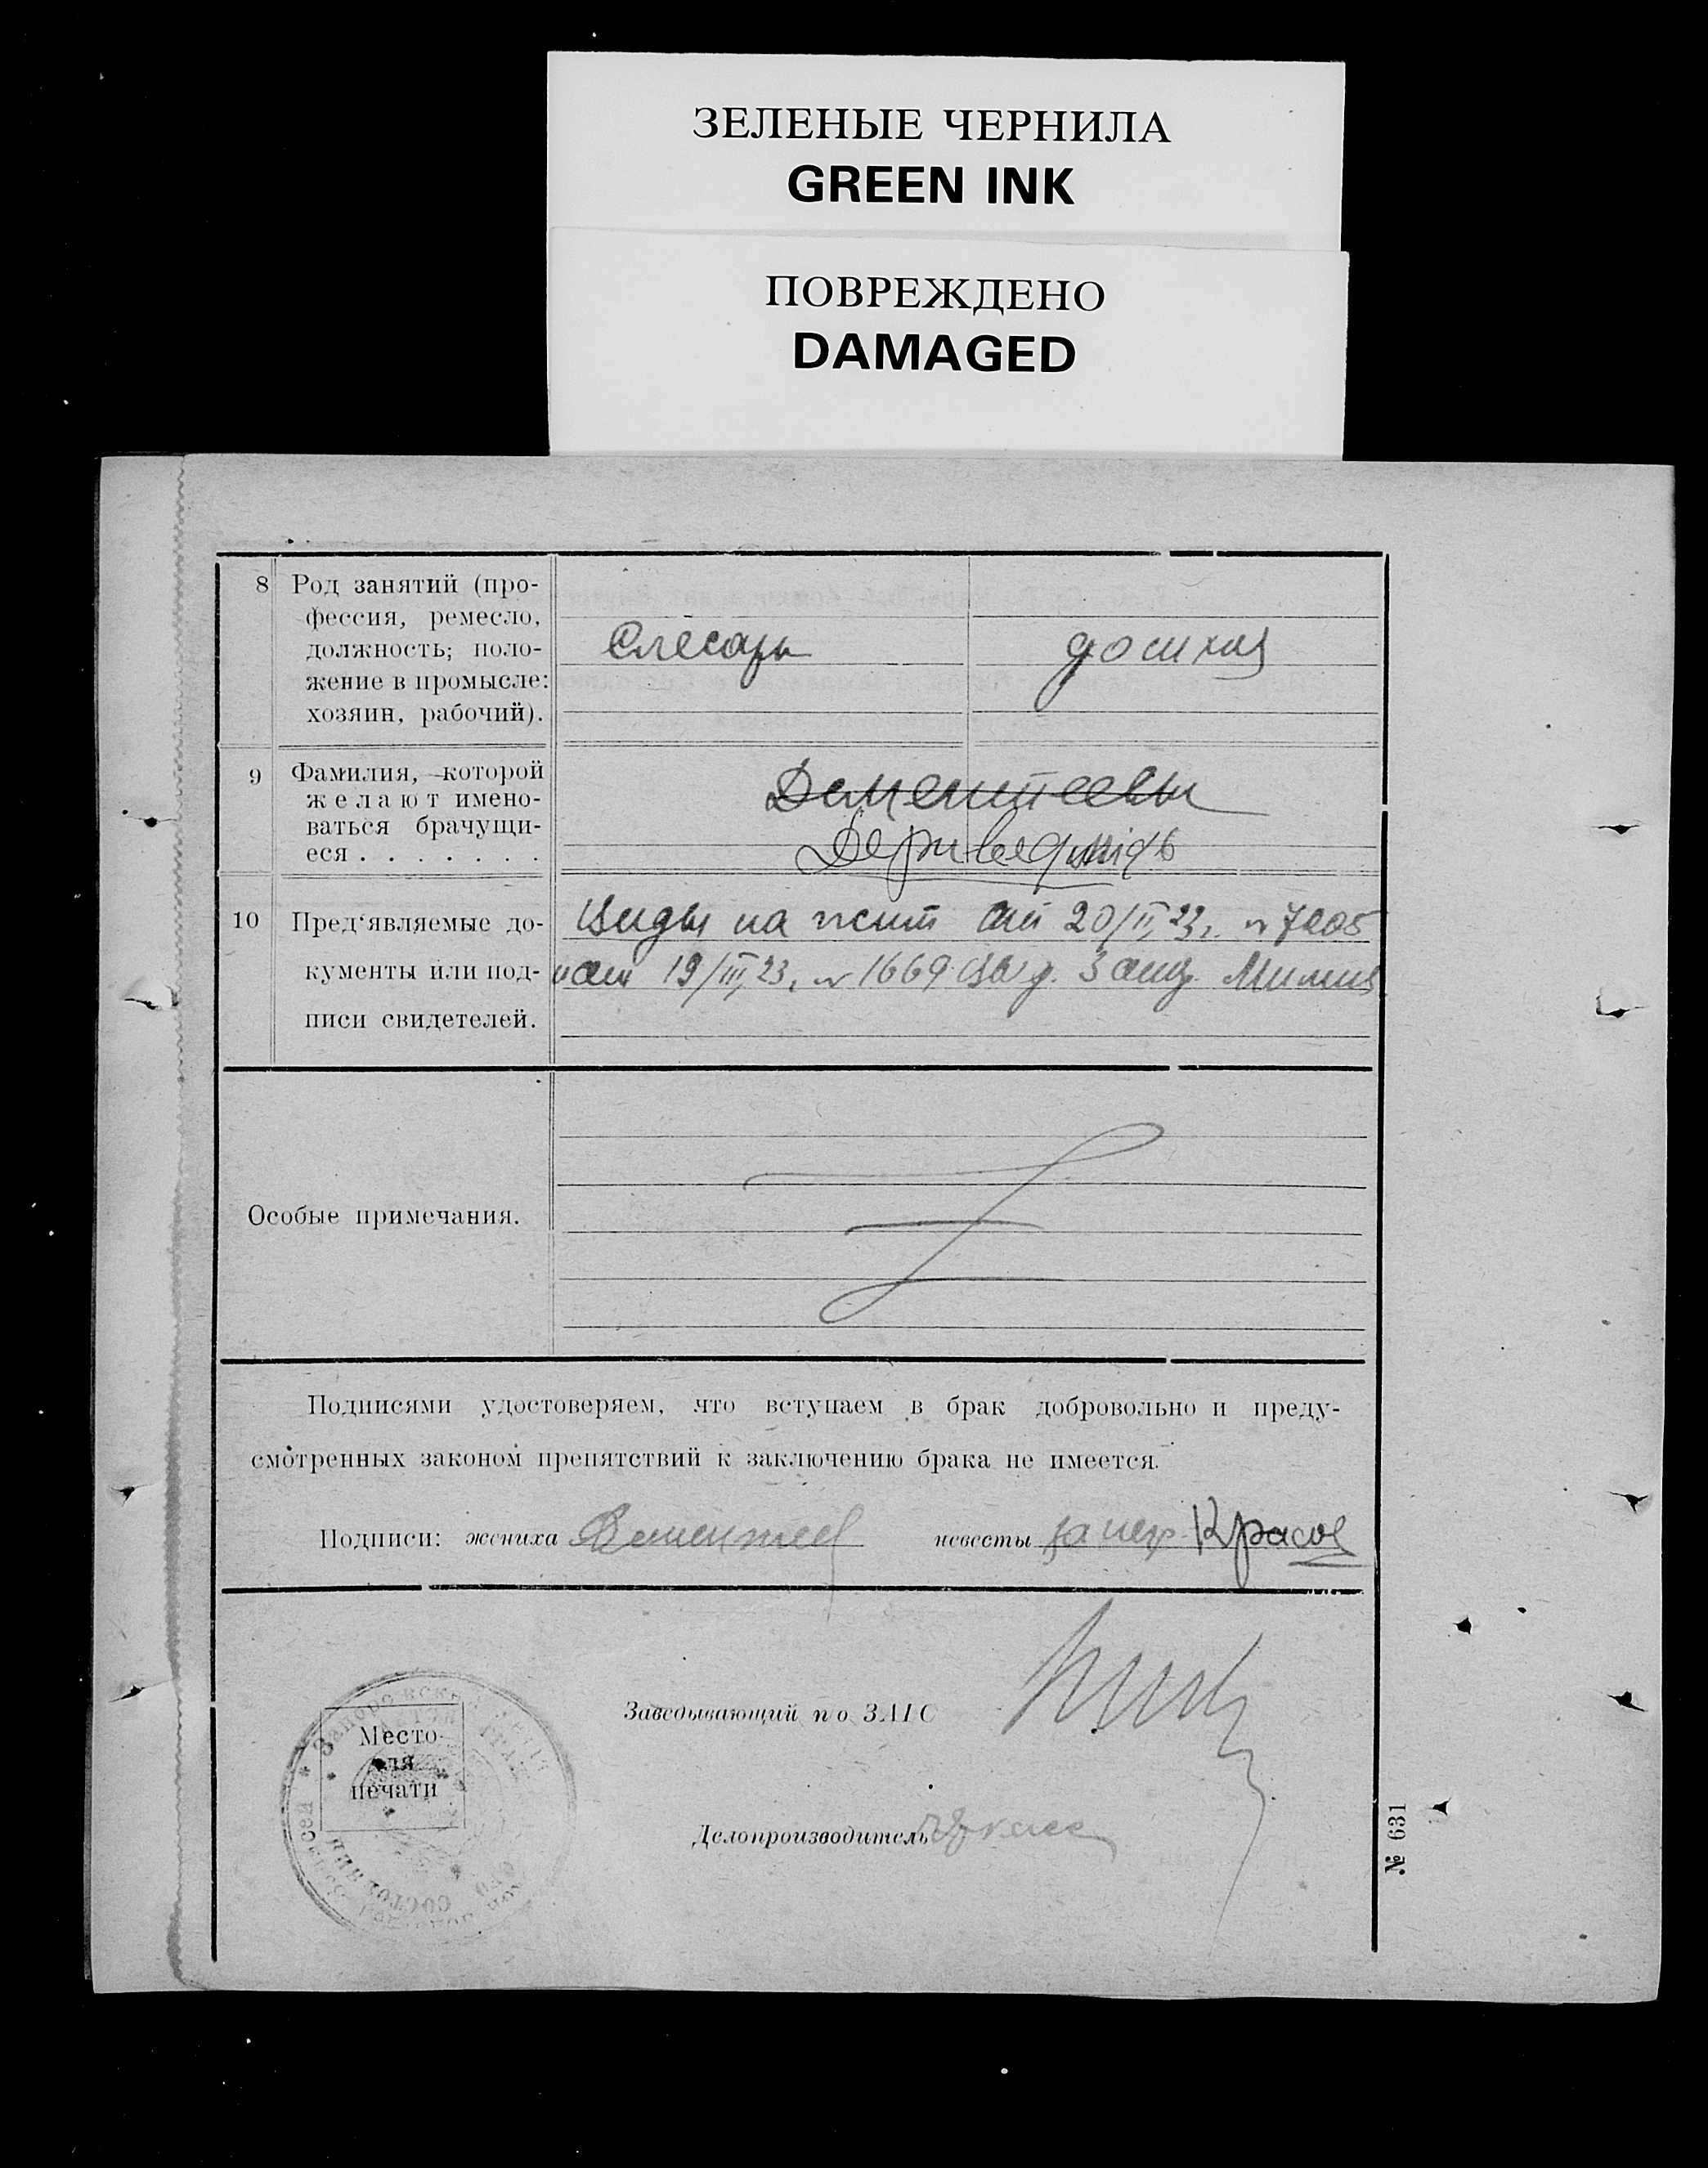 ЗЕЛЕНЫЕ ЧЕРНИЛА
GREEN INK
ПОВРЕЖДЕНО
DAMAGED
8 Род занятий (про-
фессия, ремесло,
должность; поло-
жение в промысле:
хозяин, рабочий).
Слесарь
9 Фамилия, которой
желают имено-
ваться брачущи-
еся . . . . . . .
Дементеевы
10 Пред‘являемые до-
кументы или под-
писи свидетелей.
Виды на жит от 20/II 23 г. №
и от 19/III 23 г. № 1669
Особые примечания.
Подписями удостоверяем, что вступаем в брак добровольно и преду-
смотренных законом препятствий к заключению брака не имеется.
Подписи: жениха Дементеев невесты Красов
Место
для
печати
Заведывающий по ЗАГС
Делопроизводитель
№ 631